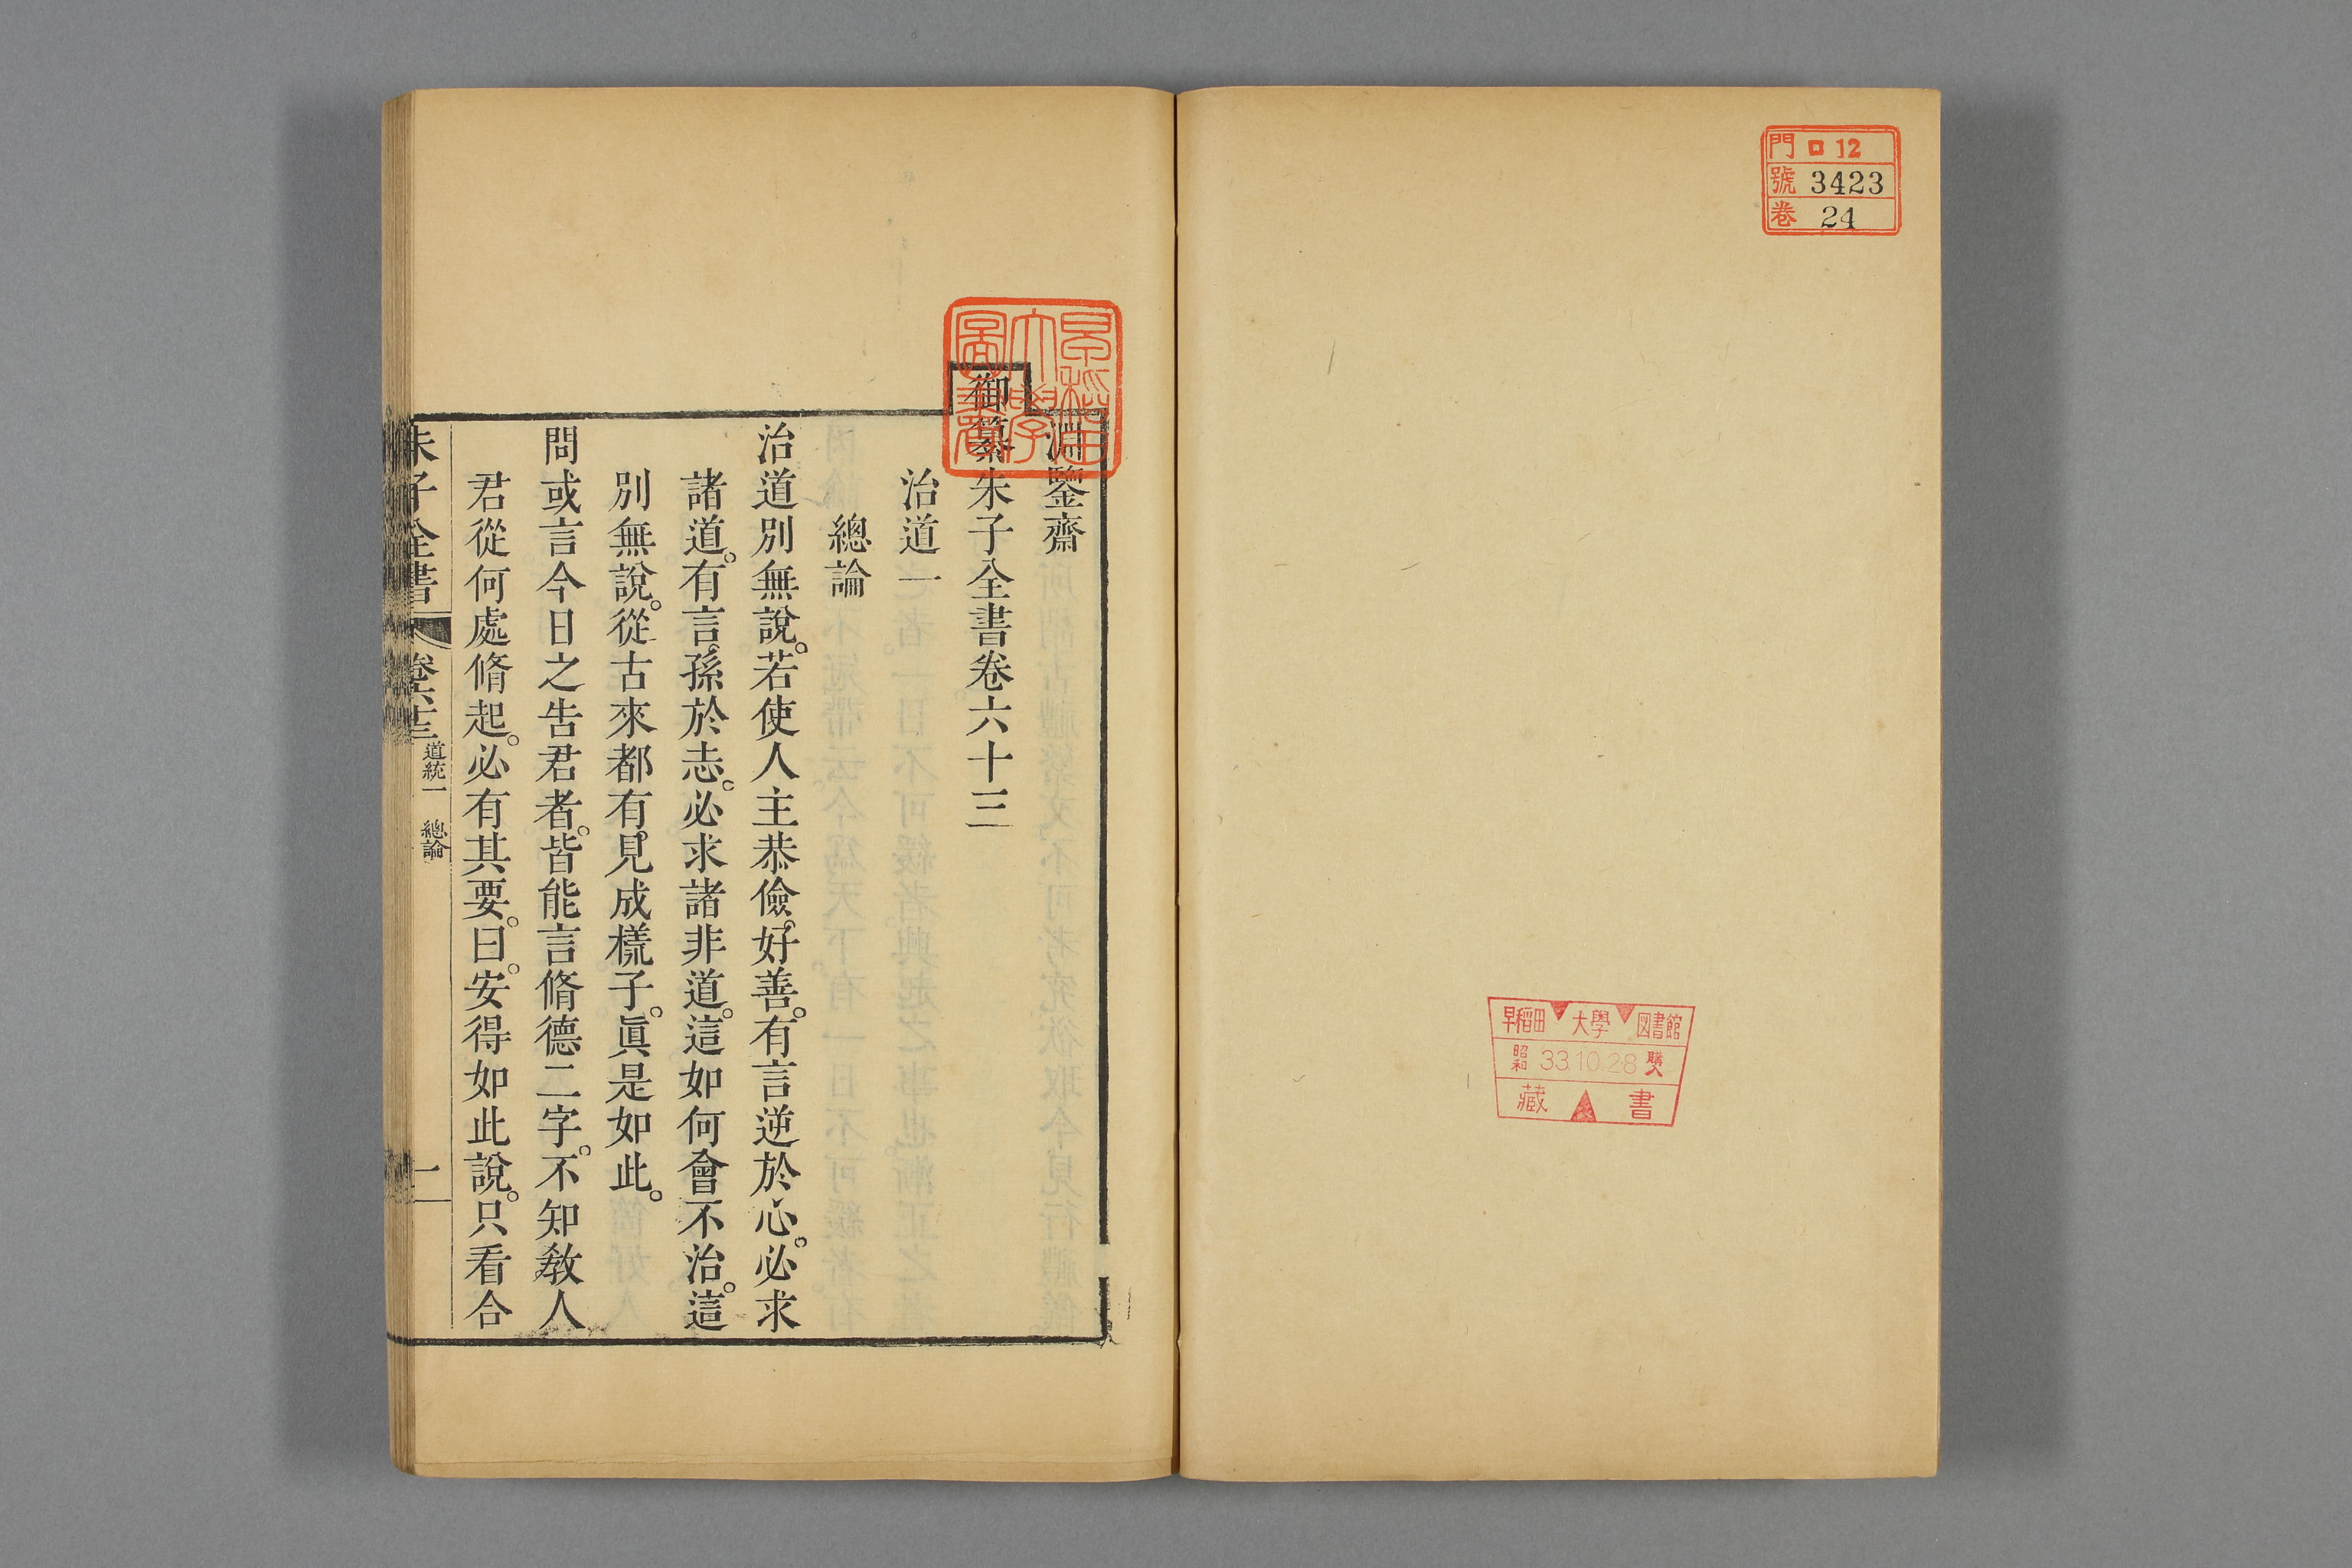 門 ロ 12
號 3423
卷 24
早稲田 大學 図書館
昭和 33.10.28 購入
藏 書
淵鑒齋
御纂朱子全書卷六十三
治道一
總論
治道別無說。若使人主恭儉。好善。有言逆於心。必求
諸道。有言孫於志。必求諸非道。這如何會不治。這
別無說。從古來都有見成樣子。眞是如此。
問或言今日之告君者。皆能言脩德二字。不知敎人
君從何處脩起。必有其要。曰。安得如此說。只看合
朱子全書 卷六十三 道統一 總論 一